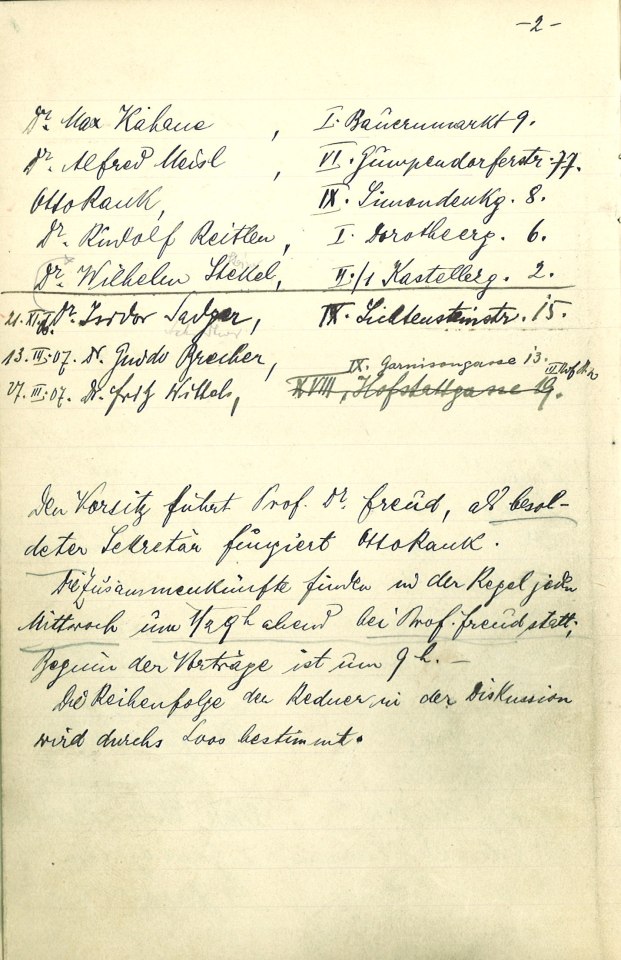 -2-
Dr. Max Kahane , I. Bauernmarkt 9.
Dr. Alfred Meisl , VI. Gumpendorferstr. 77.
Otto Rank, IX. Simondenkg. 8.
Dr. Rudolf Reitler, I. Dorotheerg. 6.
Dr. Wilhelm Stekel, II./1 Kastellezg. 2.
21. XI. Dr. Isidor Sadger, IX. Lichtensteinstr. 15.
13. III. 07. Dr. Guido Brecher, IX. Garnisongasse 13.
27. III. 07. Dr. Fritz Wittels, XVIII, Hofstattgasse 19.
Den Vorsitz führt Prof. Dr. Freud, als besol-
deter Sekretär fungiert Otto Rank.
Die Zusammenkünfte finden in der Regel jeden
Mittwoch um 1/2 9h abend bei Prof. Freud statt;
Beginn der Vorträge ist um 9 h. –
Die Reihenfolge der Redner in der Diskussion
wird durchs Loos bestimmt.